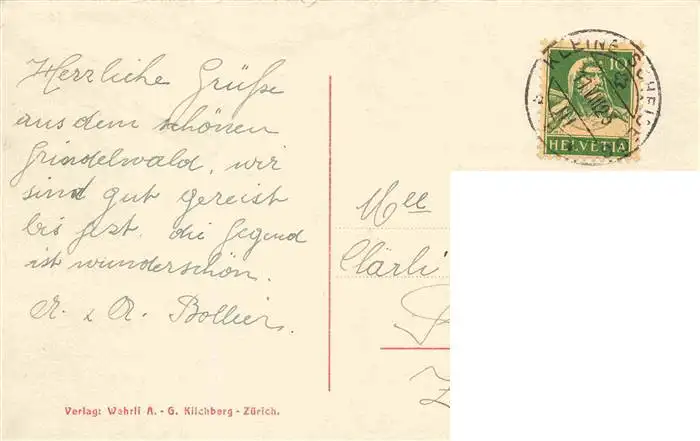 Herrliche Grüße
aus dem schönen
Grindelwald, wir
sind gut gereist
bis jezt, die Gegend
ist wunderschön.
A. & A. Bollier.
Verlag: Wehrli A.-G. Kilchberg-Zürich.
KLEINE SCHEIDEGG
10
HELVETIA
Mlle
Clärli